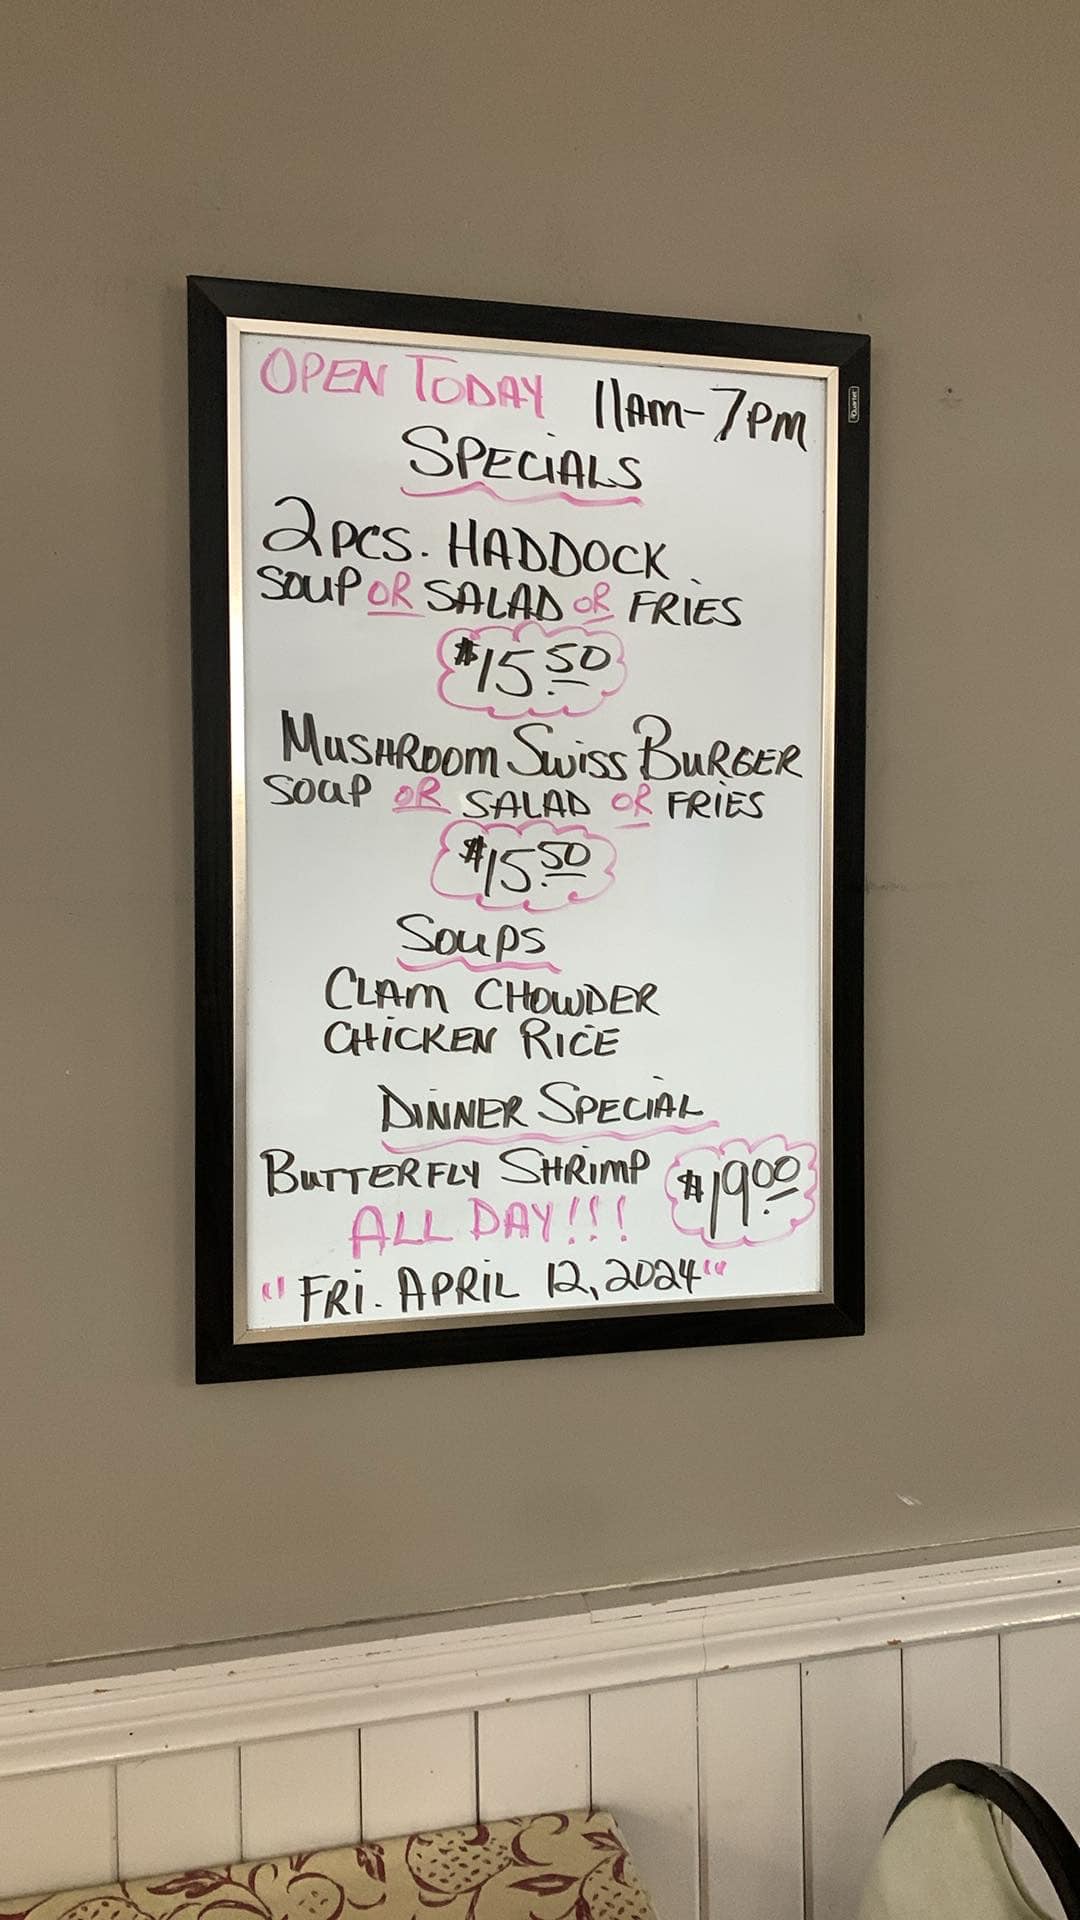 OPEN TODAY 11AM-7PM
SPECIALS
2 PCS. HADDOCK
SOUP OR SALAD OR FRIES
$15.50
MUSHROOM SWISS BURGER
SOUP OR SALAD OR FRIES
$15.50
SOUPS
CLAM CHOWDER
CHICKEN RICE
DINNER SPECIAL
BUTTERFLY SHRIMP $19.00
ALL DAY!!!
"FRI. APRIL 12, 2024"
Quartet